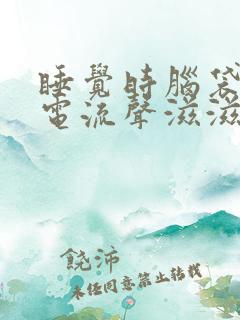 睡覺時腦袋
電流聲滋滋
饒沛
未經同意禁止轉載